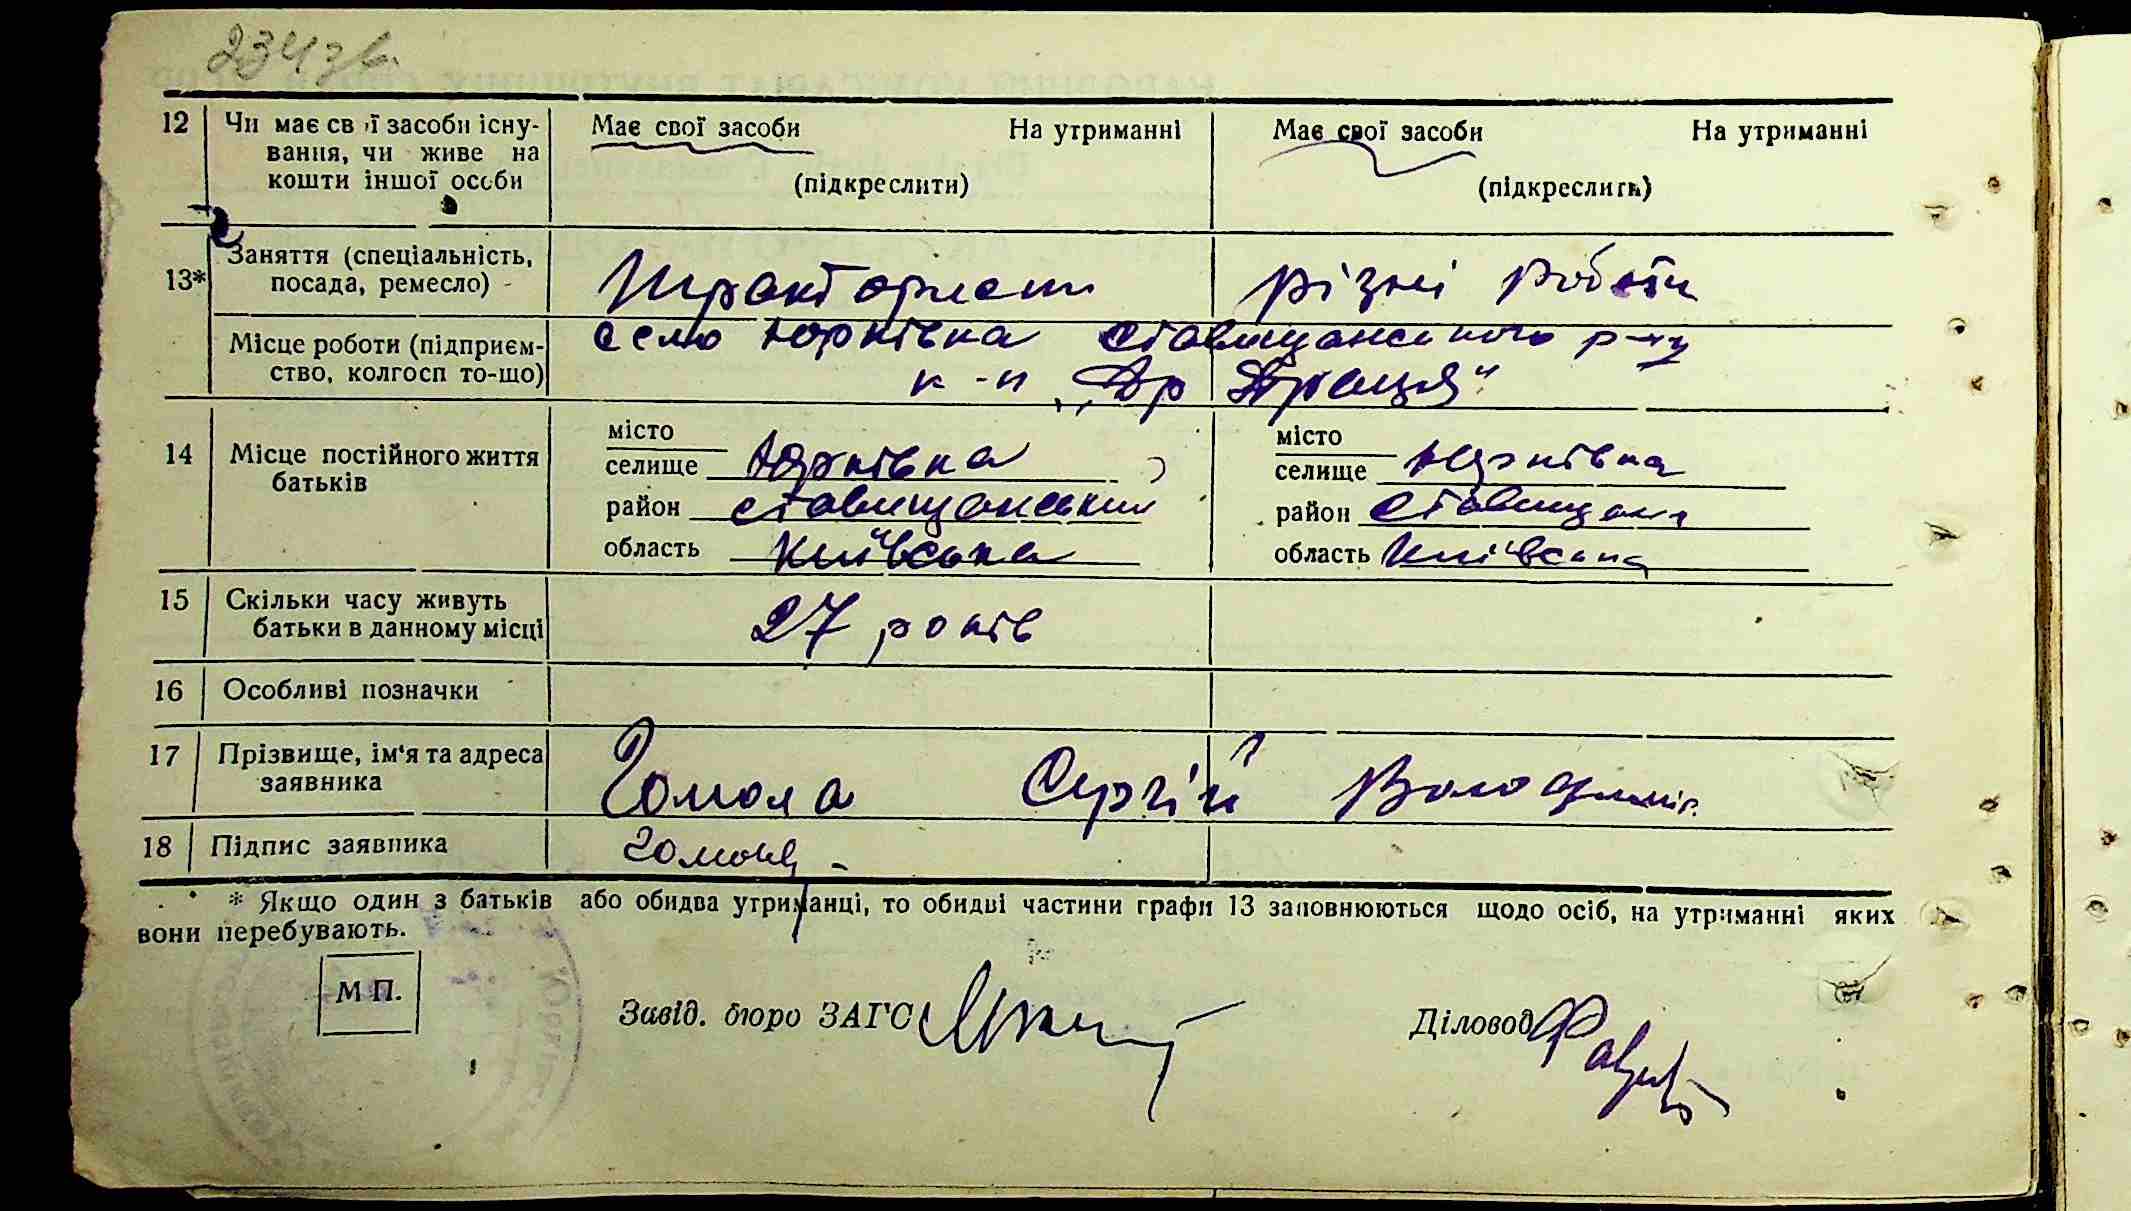 234зв.
12 Чи має св ї засоби існу- Має свої засоби На утриманні Має свої засоби На утриманні
вання, чи живе на
кошти іншої особи (підкреслити) (підкреслить)
13* Заняття (спеціальність, Тракторист різні роботи
посада, ремесло)
Місце роботи (підприєм- село Юрківка Ставищанського р-ну
ство, колгосп то-що) к-п „Др Праця"
14 Місце постійного життя місто місто
батьків селище Юрківка селище Юрківка
район Ставищанський район Ставищан
область Київська область Київська
15 Скільки часу живуть 27 років
батьки в данному місці
16 Особливі позначки
17 Прізвище, ім'я та адреса Гомола Сергій Володимир.
заявника
18 Підпис заявника Гомола
* Якщо один з батьків або обидва утриманці, то обидві частини графи 13 заповнюються щодо осіб, на утриманні яких
вони перебувають.
М П.
Завід. бюро ЗАГС Діловод